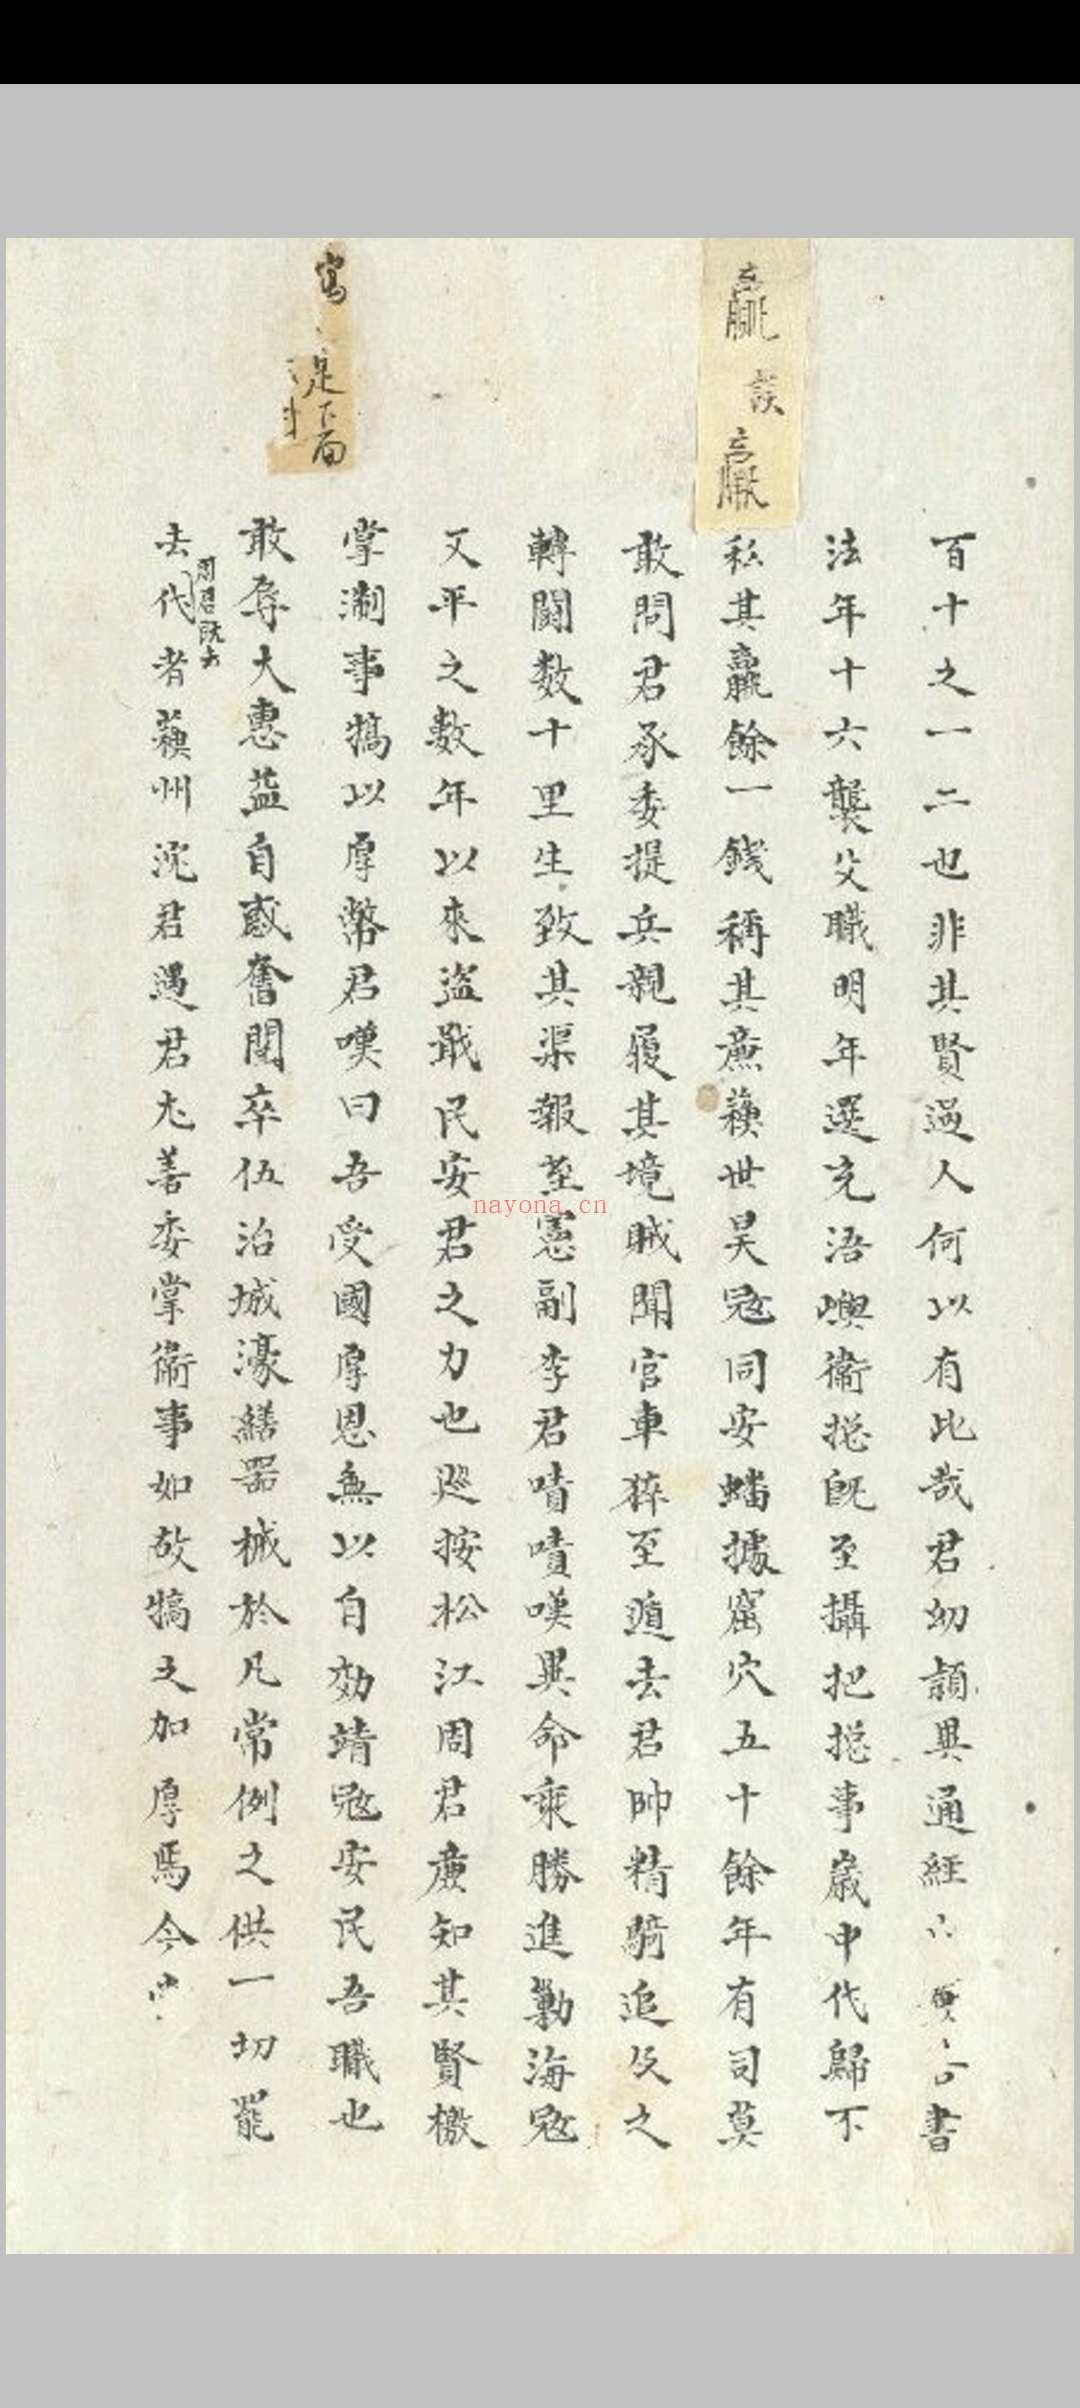 百十之一二也非其賢過人何以有此哉君幼穎異通經書
法年十六襲父職明年選充浯嶼衞捴既至攝把捴事歲申代歸不
私其贏餘一錢稱其廉蘓世昊冦同安蟠據窟穴五十餘年有司莫
敢問君承委提兵親履其境賊聞官車猝至遁去君帥精騎追及之
轉闘数十里生致其渠報至憲副李君嘖嘖嘆異命乘勝進勦海冦
又平之數年以來盜戢民安君之力也巡按松江周君廉知其賢檄
掌淛事犒以厚幣君嘆曰吾受國厚恩無以自効靖冦安民吾職也
敢辱大惠益自感奮閱卒伍治城濠繕器械於凡常例之供一切罷
去代者蘓州沈君遇君尤善委掌衞事如故犒之加厚焉今
周君既去
贏 誤 羸
寫
是下面
nayona.cn